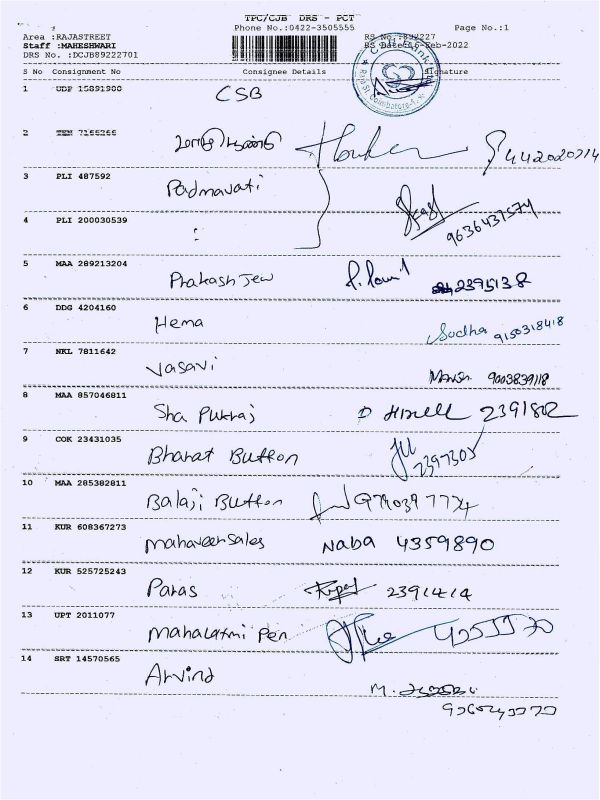 TPC/CJB DRS - PCT
Phone No.:0422-3505555 Page No.:1
Area :RAJASTREET RS No.:892227
Staff :MAHESHWARI RS Date:16-Feb-2022
DRS No. :DCJB89222701
S No Consignment No Consignee Details Signature
1 UDP 15891900 CSB
2 TEN 7166266
3 PLI 487592 Padmavati
4 PLI 200030539 : 9636437574
5 MAA 289213204 Prakash Jew 2395138
6 DDG 4204160 Hema Sudha 9150318418
7 NKL 7811642 Vasavi 9003839118
8 MAA 857046811 Sha Pukraj 2391802
9 COK 23431035 Bharat Button 2397305
10 MAA 285382811 Balaji Button
11 KUR 608367273 Mahaveer Sales Naba 4359890
12 KUR 525725243 Paras 2391414
13 UPT 2011077 Mahalaxmi Pen
14 SRT 14570565 Arvind